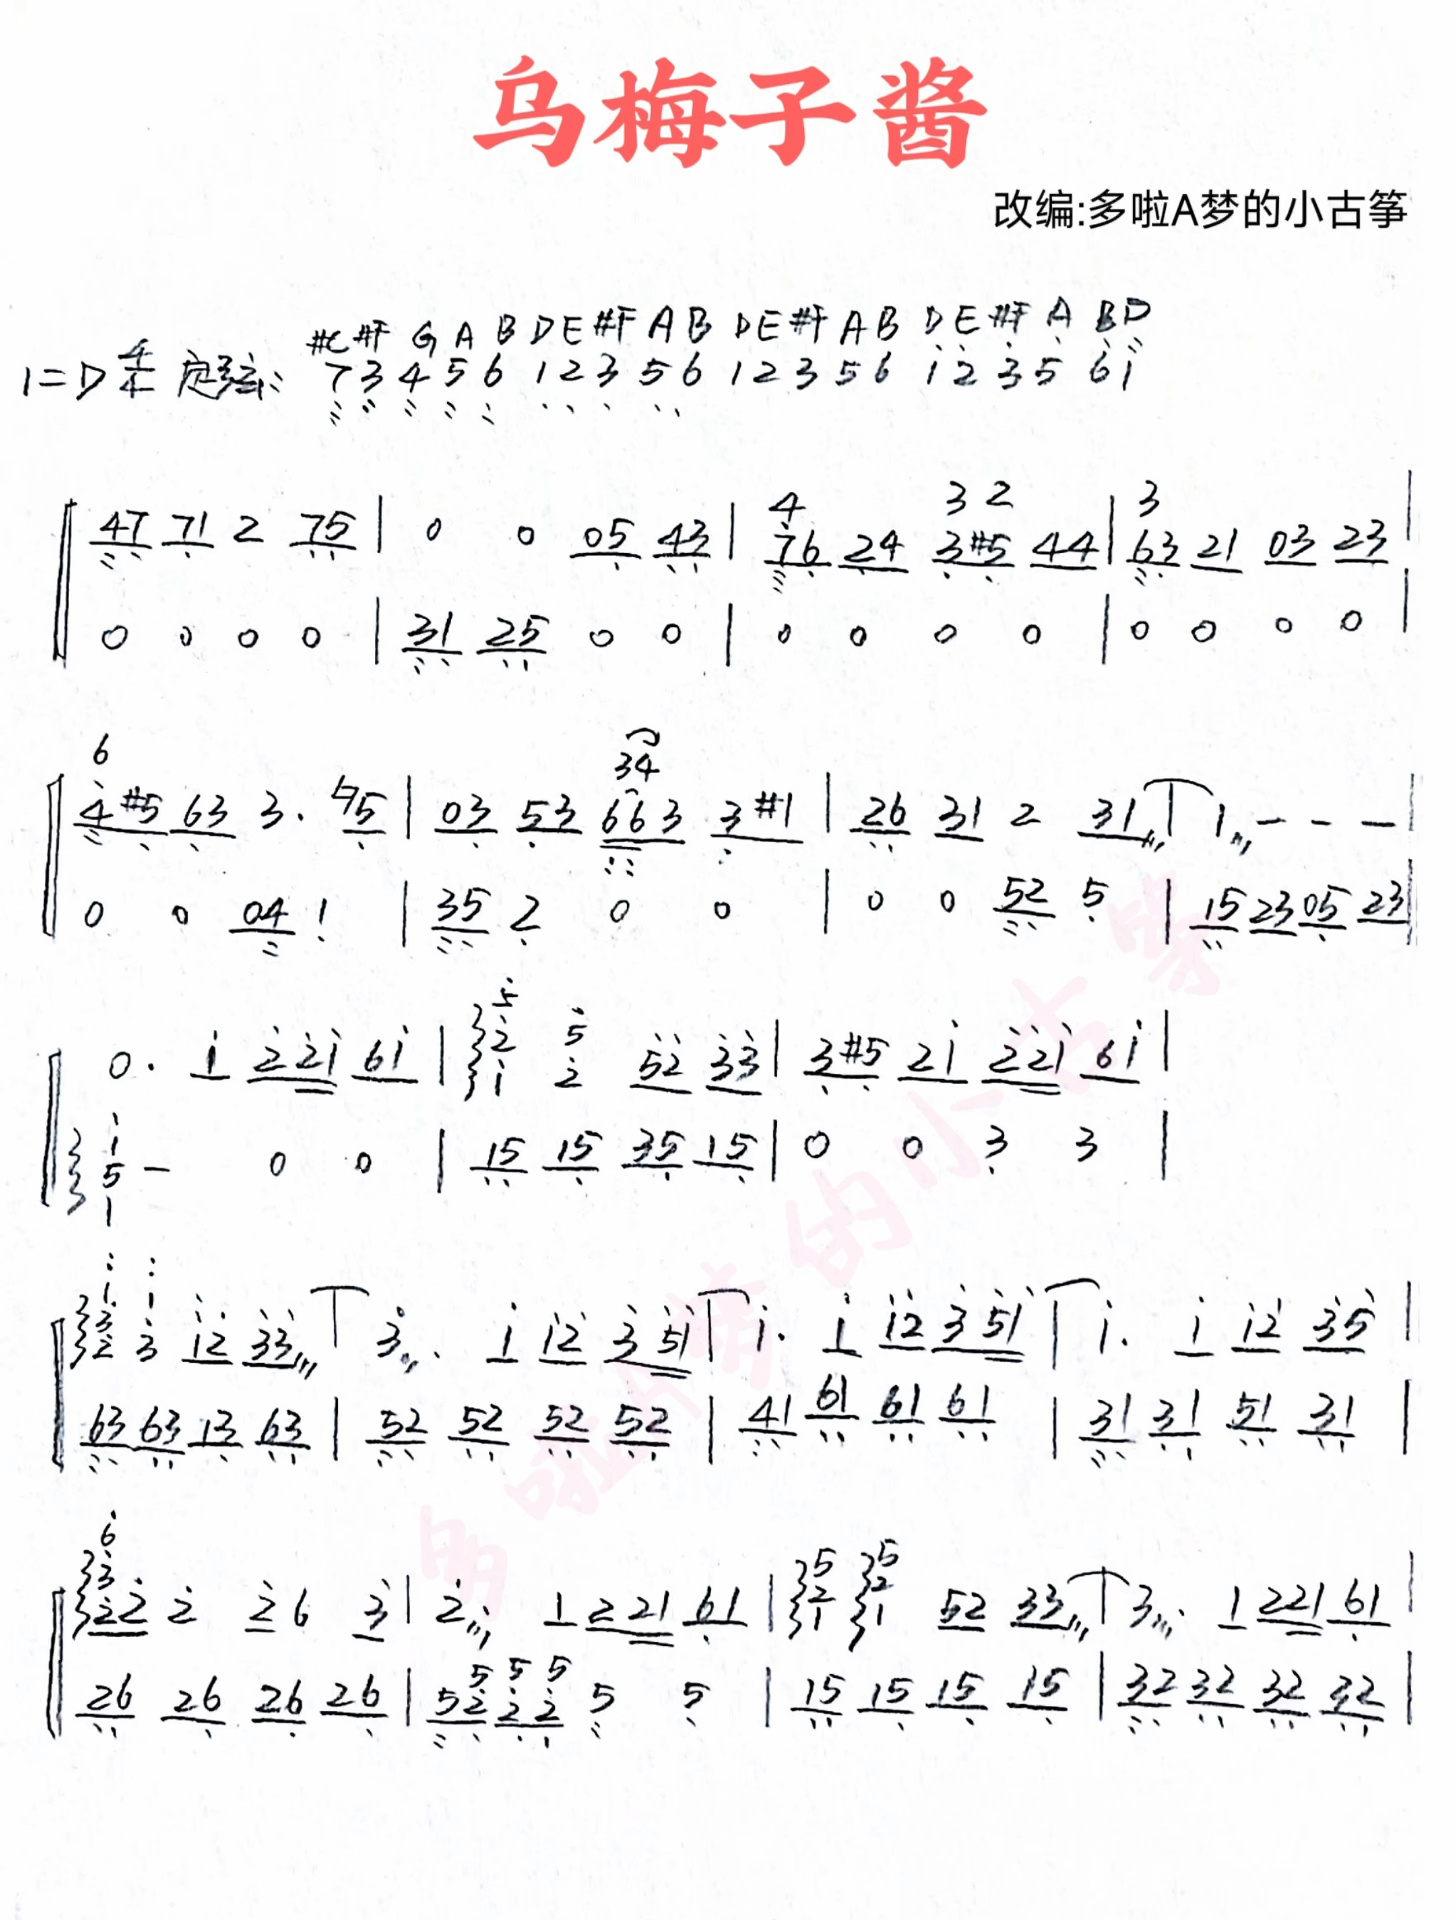 乌梅子酱
改编:多啦A梦的小古筝
#C #F G A B D E #F A B D E #F A B D E #F A B D
1=D 4/4 定弦: 7 3 4 5 6 1 2 3 5 6 1 2 3 5 6 1 2 3 5 6 1
4 3 2 3
47 71 2 75 | 0 0 05 43 | 76 24 3#5 44 | 63 21 03 23 |
0 0 0 0 | 31 25 0 0 | 0 0 0 0 | 0 0 0 0 |
6 34
4#5 63 3. ♮5 | 03 53 663 3#1 | 26 31 2 31 | 1 - - - |
0 0 04 1 | 35 2 0 0 | 0 0 52 5 | 15 23 05 23 |
5
2 5
0. 1 221 61 | 1 2 52 33 | 3#5 21 221 61 |
1
5 - 0 0 | 15 15 35 15 | 0 0 3 3 |
1
1 1
3
2 3 12 33 | 3. 1 12 351 | 1. 1 12 351 | 1. 1 12 35 |
63 63 13 63 | 52 52 52 52 | 41 61 61 61 | 31 31 51 31 |
6
3 5 5
2 2
22 2 2 6 3 | 2 1 221 61 | 1 1 52 33 | 3. 1 221 61 |
5 5 5
26 26 26 26 | 52 22 5 5 | 15 15 15 15 | 32 32 32 32 |
多啦A梦的小古筝